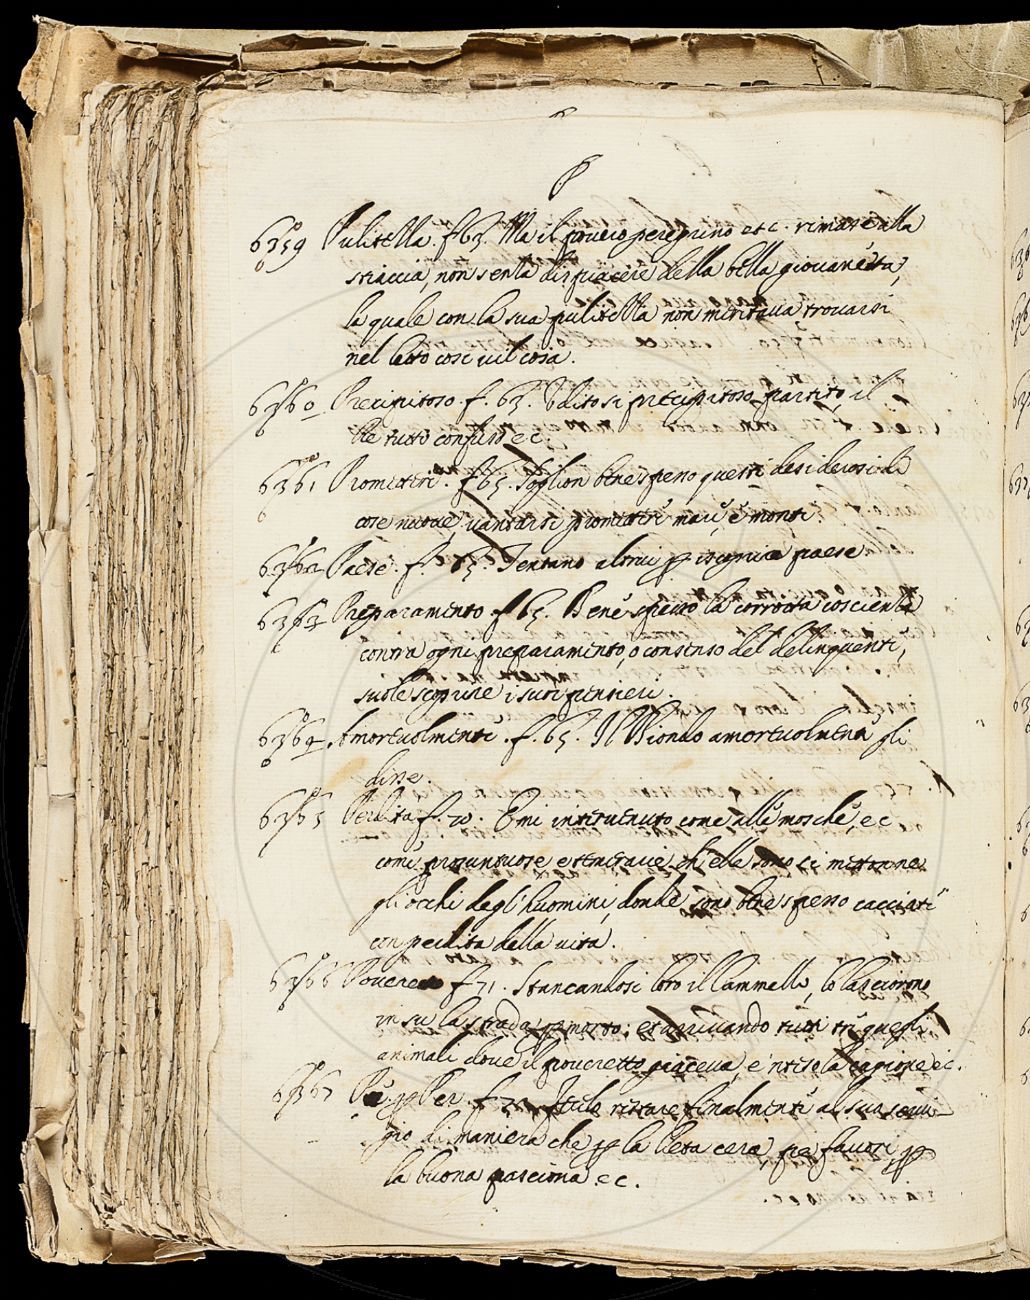 P
6359 Pulitella. f. 63. Ma il povero peregrino etc. rimase alla
stiaccia, non senza dispiacere della bella giovanetta,
la quale con la sua pulitella non meritava trovarsi
nel letto così vil cosa.
6360 Precipitoso. f. 63. Uditosi precipitoso partito, il
Re tutto confuso ec.
6361 Promettere. f. 65. Soglion bene spesso questi desiderosi di
cose nuove vantarsi promettere mari, e monti
6362 Paese. f. 65. Tentano altrui per iscoprire paese.
6363 Preparamento. f. 65. Bene spesso la corrotta coscienza
contra ogni preparamento, o consenso del delinquente,
suole scoprire i suoi pensieri.
6364 Amorevolmente. f. 65. Il Biondo amorevolmente gli
disse.
6365 Perdita. f. 70. E mi intervenuto come alle mosche, ec.
come prosuntuose e temerarie, ch'elle sono si mettono ne
gli occhi degl'huomini, donde sono bene spesso cacciate
con perdita della vita.
6366 Povere f. 71. Stancandosi loro il Cammello, lo lasciorono
in su la strada per morto: et arrivando tutti tre quegli
animali dove il poveretto giaceva, e 'ntisola cagione ec.
6367 f. 72. finalmente al suo servi-
gio di maniera che per la lieta cera, pe favori, per
la buona pasciona ec.